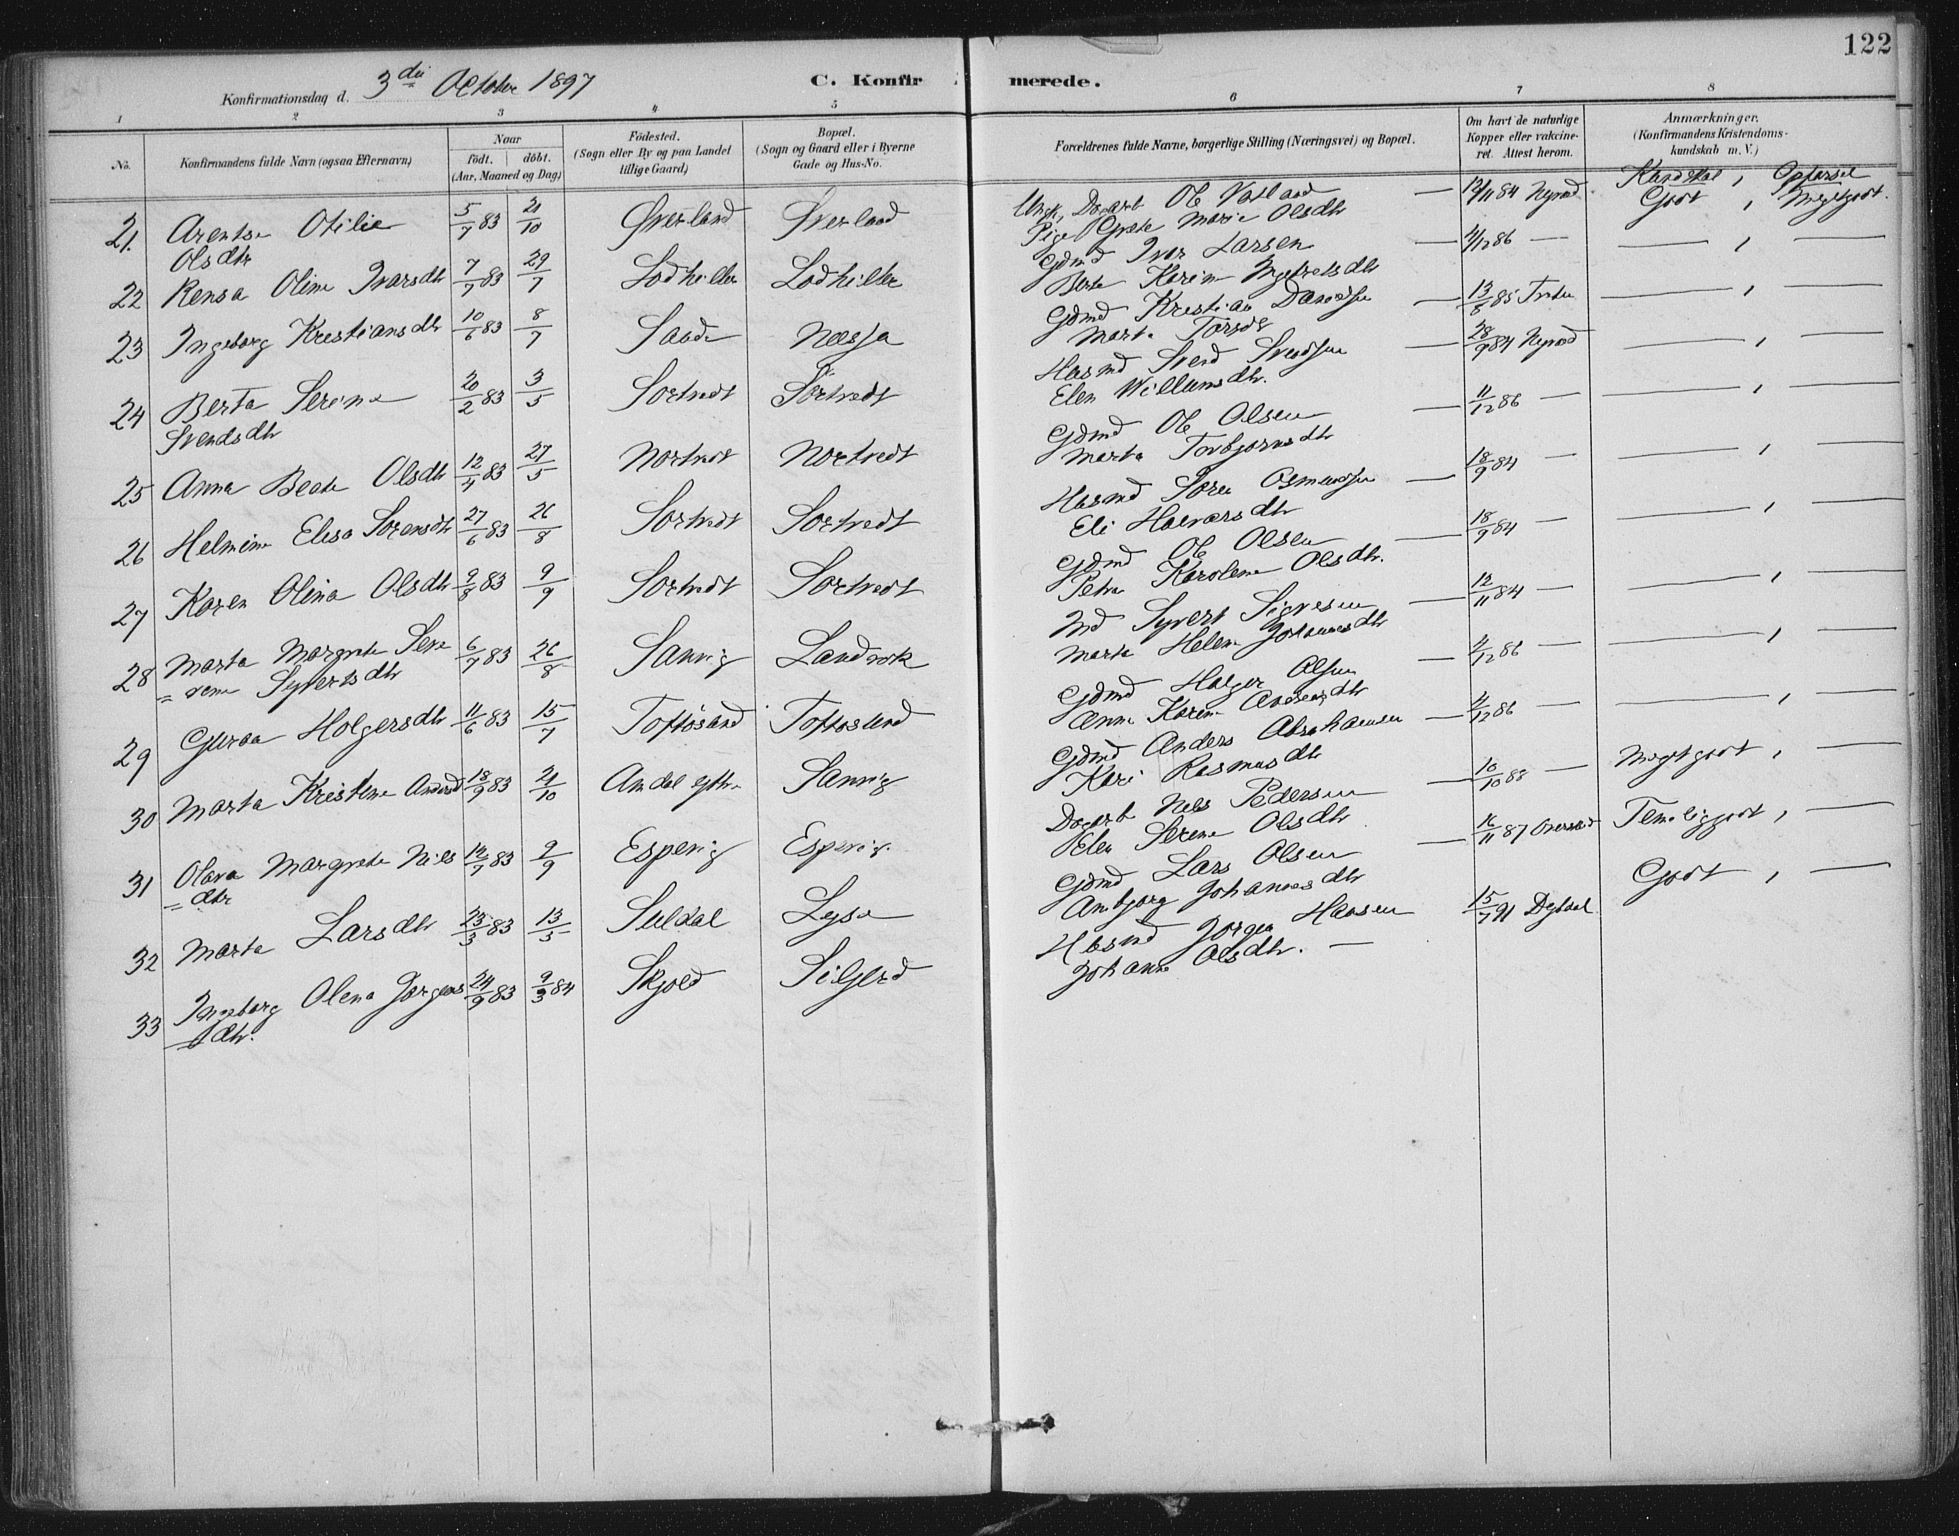 122
Konfirmationsdag d. 3die October 1897
C. Konfirmerede.
1 2 3 4 5 6 7 8
No.
Konfirmandens fulde Navn (ogsaa Efternavn)
Naar
født. | døbt.
(Aar, Maaned og Dag)
Fødested.
(Sogn eller By og paa Landet
tillige Gaard)
Bopæl.
(Sogn og Gaard eller i Byerne
Gade og Hus-No.
Forældrenes fulde Navne, borgerlige Stilling (Næringsvei) og Bopæl.
Om havt de naturlige
Kopper eller vakcine-
ret. Attest herom.
Anmærkninger.
(Konfirmandens Kristendoms-
kundskab m. V.)
Kundskab, Opførsel
21. Arentse Otilie 5/7 83 21/10 Øverland Øverland Ungk, Dagarb Ole Vatland — 12/11 84 Nyrød. Godt, Megetgodt.
Olsdtr Pige Grete Marie Olsdtr
22 Rensa Oline Ivarsdtr 7/7 83 29/7 Lodhiller Lodhiller Gdmd Ivar Larsen — 4/12 86 — — , —
Berte Karine Ingebretsdtr
23 Ingeborg Kristiansdtr 10/6 83 8/7 Saade Næssa Gdmd Kristian Davidsen — 13/6 85 — , —
Marta Torsdtr
24 Berta Serine 20/2 83 3/5 Sortvedt Sørtvedt Husmd Svend Svendsen — 28/9 84 Nyrød — , —
Svendsdtr Elen Willumsdtr.
25 Anna Beate Olsdtr 12/4 83 27/5 Nortvedt Nortvedt Gdmd Ole Olsen — 11/12 86 — — , —
Marta Torbjørnsdtr
26 Helmine Elisa Sørensdtr 27/6 83 26/8 Sortvedt Sortvedt Husmd Søren Osmundsen — 18/9 84 — — , —
Eli Halvorsdtr
27 Karen Olina Olsdtr 9/8 83 9/9 Sortvedt Sortvedt Gdmd Ole Olsen — 18/9 84 — — , —
Petra Karoline Olsdtr.
28 Marta Margrete Seve 6/7 83 26/8 Sanvig Landvik Md Syvert Sigvesen — 12/11 84 — — , —
= rine Syvertsdtr Marta Helene Johannesdtr
29 Guroa Holgersdtr 11/6 83 15/7 Toftøsund Toftøsund Gdmd Holger Olsen — 4/12 86 — — , —
Anne Karine Andersdtr
30 Marta Kristine Andersd 18/9 83 21/10 Amdal ytre Sanvig Gdmd Anders Abrahamsen — 4/12 86 — , —
Kari Rasmusdtr
31 Olava Margrete Niels 12/7 83 9/9 Espevig Espevig. Dagarb Nils Pedersen — 10/10 88 — Megetgodt, —
= dtr Elen Serine Olsdtr
32 Marta Larsdtr 23/3 83 13/5 Suldal Lysa Gdmd Lars Olsen — 16/11 87 Temeliggodt, —
Anbjorg Johannesdtr
33 Ingeborg Olena Jørgens 24/9 83 9/3 84 Skjold Silgjerd Husmd Jørgen Hansen 15/7 91 Godt, —
dtr. Johanne Olsdtr. —